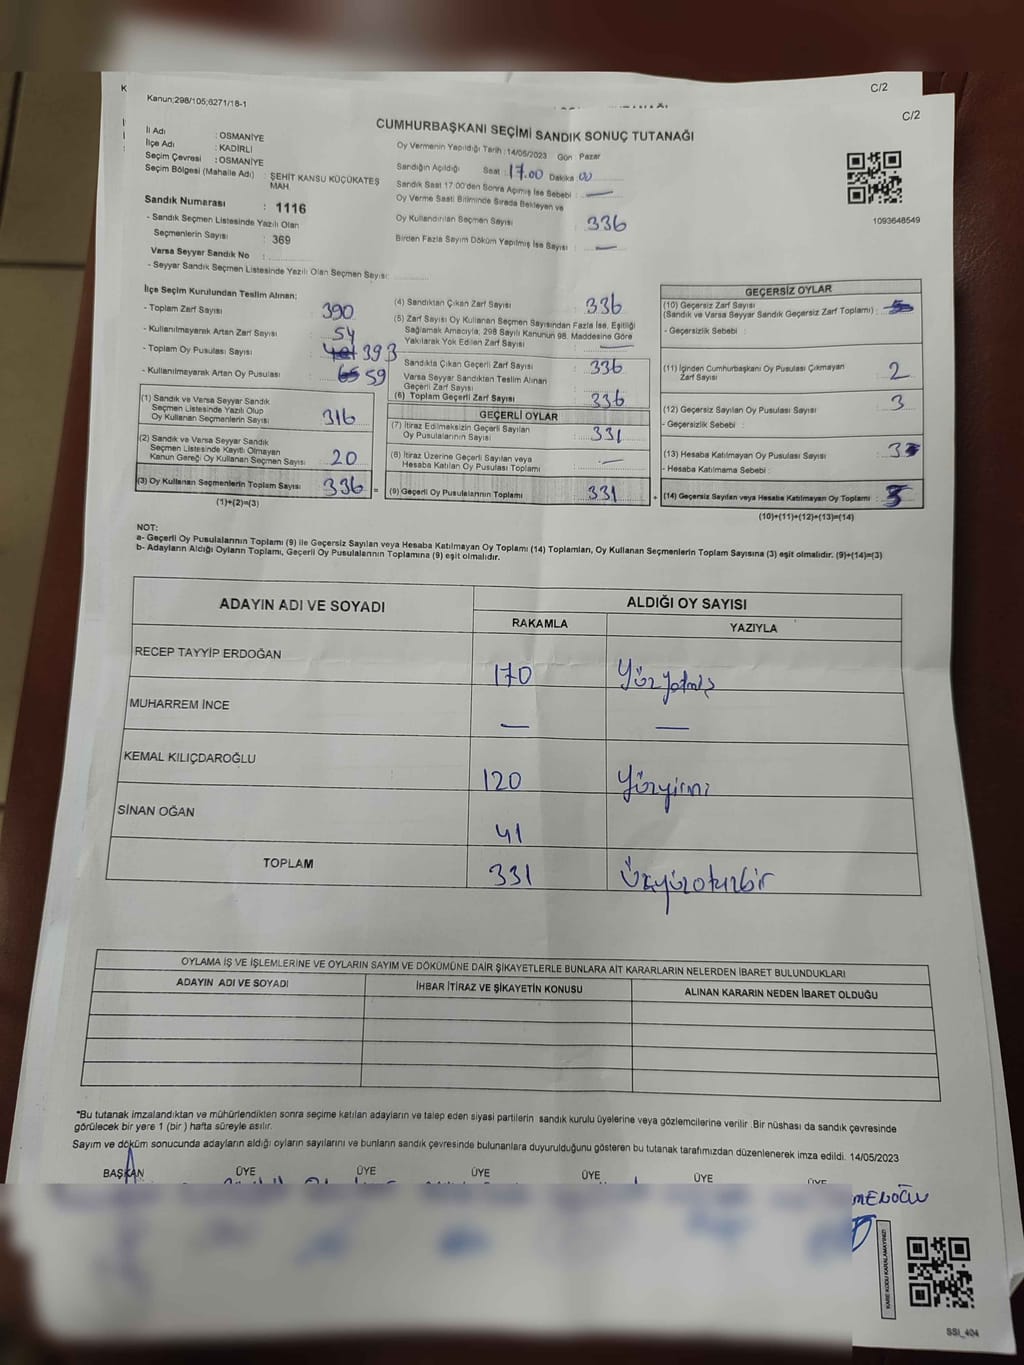 C/2
K
Kanun;298/105;6271/18-1
C/2
CUMHURBAŞKANI SEÇİMİ SANDIK SONUÇ TUTANAĞI
İl Adı : OSMANİYE
İlçe Adı : KADİRLİ
Seçim Çevresi : OSMANİYE
Seçim Bölgesi (Mahalle Adı) : ŞEHİT KANSU KÜÇÜKATEŞ
MAH.
Sandık Numarası : 1116
- Sandık Seçmen Listesinde Yazılı Olan
Seçmenlerin Sayısı : 369
Varsa Seyyar Sandık No :
- Seyyar Sandık Seçmen Listesinde Yazılı Olan Seçmen Sayısı:
Oy Vermenin Yapıldığı Tarih : 14/05/2023 Gün : Pazar
Sandığın Açıldığı Saat : 17.00 Dakika 00
Sandık Saat 17:00'den Sonra Açımış İse Sebebi : —
Oy Verme Saati Bitiminde Sırada Bekleyen ve
Oy Kullandırılan Seçmen Sayısı : 336
Birden Fazla Sayım Döküm Yapılmış İse Sayısı : —
1093648549
İlçe Seçim Kurulundan Teslim Alınan;
- Toplam Zarf Sayısı : 390
- Kullanılmayarak Artan Zarf Sayısı : 54
- Toplam Oy Pusulası Sayısı : 393
- Kullanılmayarak Artan Oy Pusulası : 59
(1) Sandık ve Varsa Seyyar Sandık
Seçmen Listesinde Yazılı Olup
Oy Kullanan Seçmenlerin Sayısı : 316
(2) Sandık ve Varsa Seyyar Sandık
Seçmen Listesinde Kayıtlı Olmayan
Kanun Gereği Oy Kullanan Seçmen Sayısı : 20
(3) Oy Kullanan Seçmenlerin Toplam Sayısı : 336 =
(1)+(2)=(3)
(4) Sandıktan Çıkan Zarf Sayısı : 336
(5) Zarf Sayısı Oy Kullanan Seçmen Sayısından Fazla İse, Eşitliği
Sağlamak Amacıyla; 298 Sayılı Kanunun 98. Maddesine Göre
Yakılarak Yok Edilen Zarf Sayısı : —
Sandıkta Çıkan Geçerli Zarf Sayısı : 336
Varsa Seyyar Sandıktan Teslim Alınan
Geçerli Zarf Sayısı
(6) Toplam Geçerli Zarf Sayısı : 336
GEÇERLİ OYLAR
(7) İtiraz Edilmeksizin Geçerli Sayılan
Oy Pusulalarının Sayısı : 331
(8) İtiraz Üzerine Geçerli Sayılan veya
Hesaba Katılan Oy Pusulası Toplamı : —
(9) Geçerli Oy Pusulalarının Toplamı : 331 +
GEÇERSİZ OYLAR
(10) Geçersiz Zarf Sayısı
(Sandık ve Varsa Seyyar Sandık Geçersiz Zarf Toplamı) :
- Geçersizlik Sebebi :
(11) İçinden Cumhurbaşkanı Oy Pusulası Çıkmayan
Zarf Sayısı : 2
(12) Geçersiz Sayılan Oy Pusulası Sayısı : 3
- Geçersizlik Sebebi :
(13) Hesaba Katılmayan Oy Pusulası Sayısı :
- Hesaba Katılmama Sebebi :
(14) Geçersiz Sayılan veya Hesaba Katılmayan Oy Toplamı : 5
(10)+(11)+(12)+(13)=(14)
NOT:
a- Geçerli Oy Pusulalarının Toplamı (9) ile Geçersiz Sayılan veya Hesaba Katılmayan Oy Toplamı (14) Toplamları, Oy Kullanan Seçmenlerin Toplam Sayısına (3) eşit olmalıdır. (9)+(14)=(3)
b- Adayların Aldığı Oyların Toplamı, Geçerli Oy Pusulalarının Toplamına (9) eşit olmalıdır.
ADAYIN ADI VE SOYADI ALDIĞI OY SAYISI
RAKAMLA YAZIYLA
RECEP TAYYİP ERDOĞAN 170 Yüzyetmiş
MUHARREM İNCE — —
KEMAL KILIÇDAROĞLU 120 Yüzyirmi
SİNAN OĞAN 41
TOPLAM 331 Üçyüzotuzbir
OYLAMA İŞ VE İŞLEMLERİNE VE OYLARIN SAYIM VE DÖKÜMÜNE DAİR ŞİKAYETLERLE BUNLARA AİT KARARLARIN NELERDEN İBARET BULUNDUKLARI
ADAYIN ADI VE SOYADI İHBAR İTİRAZ VE ŞİKAYETİN KONUSU ALINAN KARARIN NEDEN İBARET OLDUĞU
*Bu tutanak imzalandıktan ve mühürlendikten sonra seçime katılan adayların ve talep eden siyasi partilerin sandık kurulu üyelerine veya gözlemcilerine verilir .Bir nüshası da sandık çevresinde
görülecek bir yere 1 (bir ) hafta süreyle asılır.
Sayım ve döküm sonucunda adayların aldığı oyların sayılarını ve bunların sandık çevresinde bulunanlara duyurulduğunu gösteren bu tutanak tarafımızdan düzenlenerek imza edildi. 14/05/2023
BAŞKAN ÜYE ÜYE ÜYE ÜYE ÜYE ÜYE
MENOĞLU
KARE KODU KARALAMAYINIZ!
SSI_404